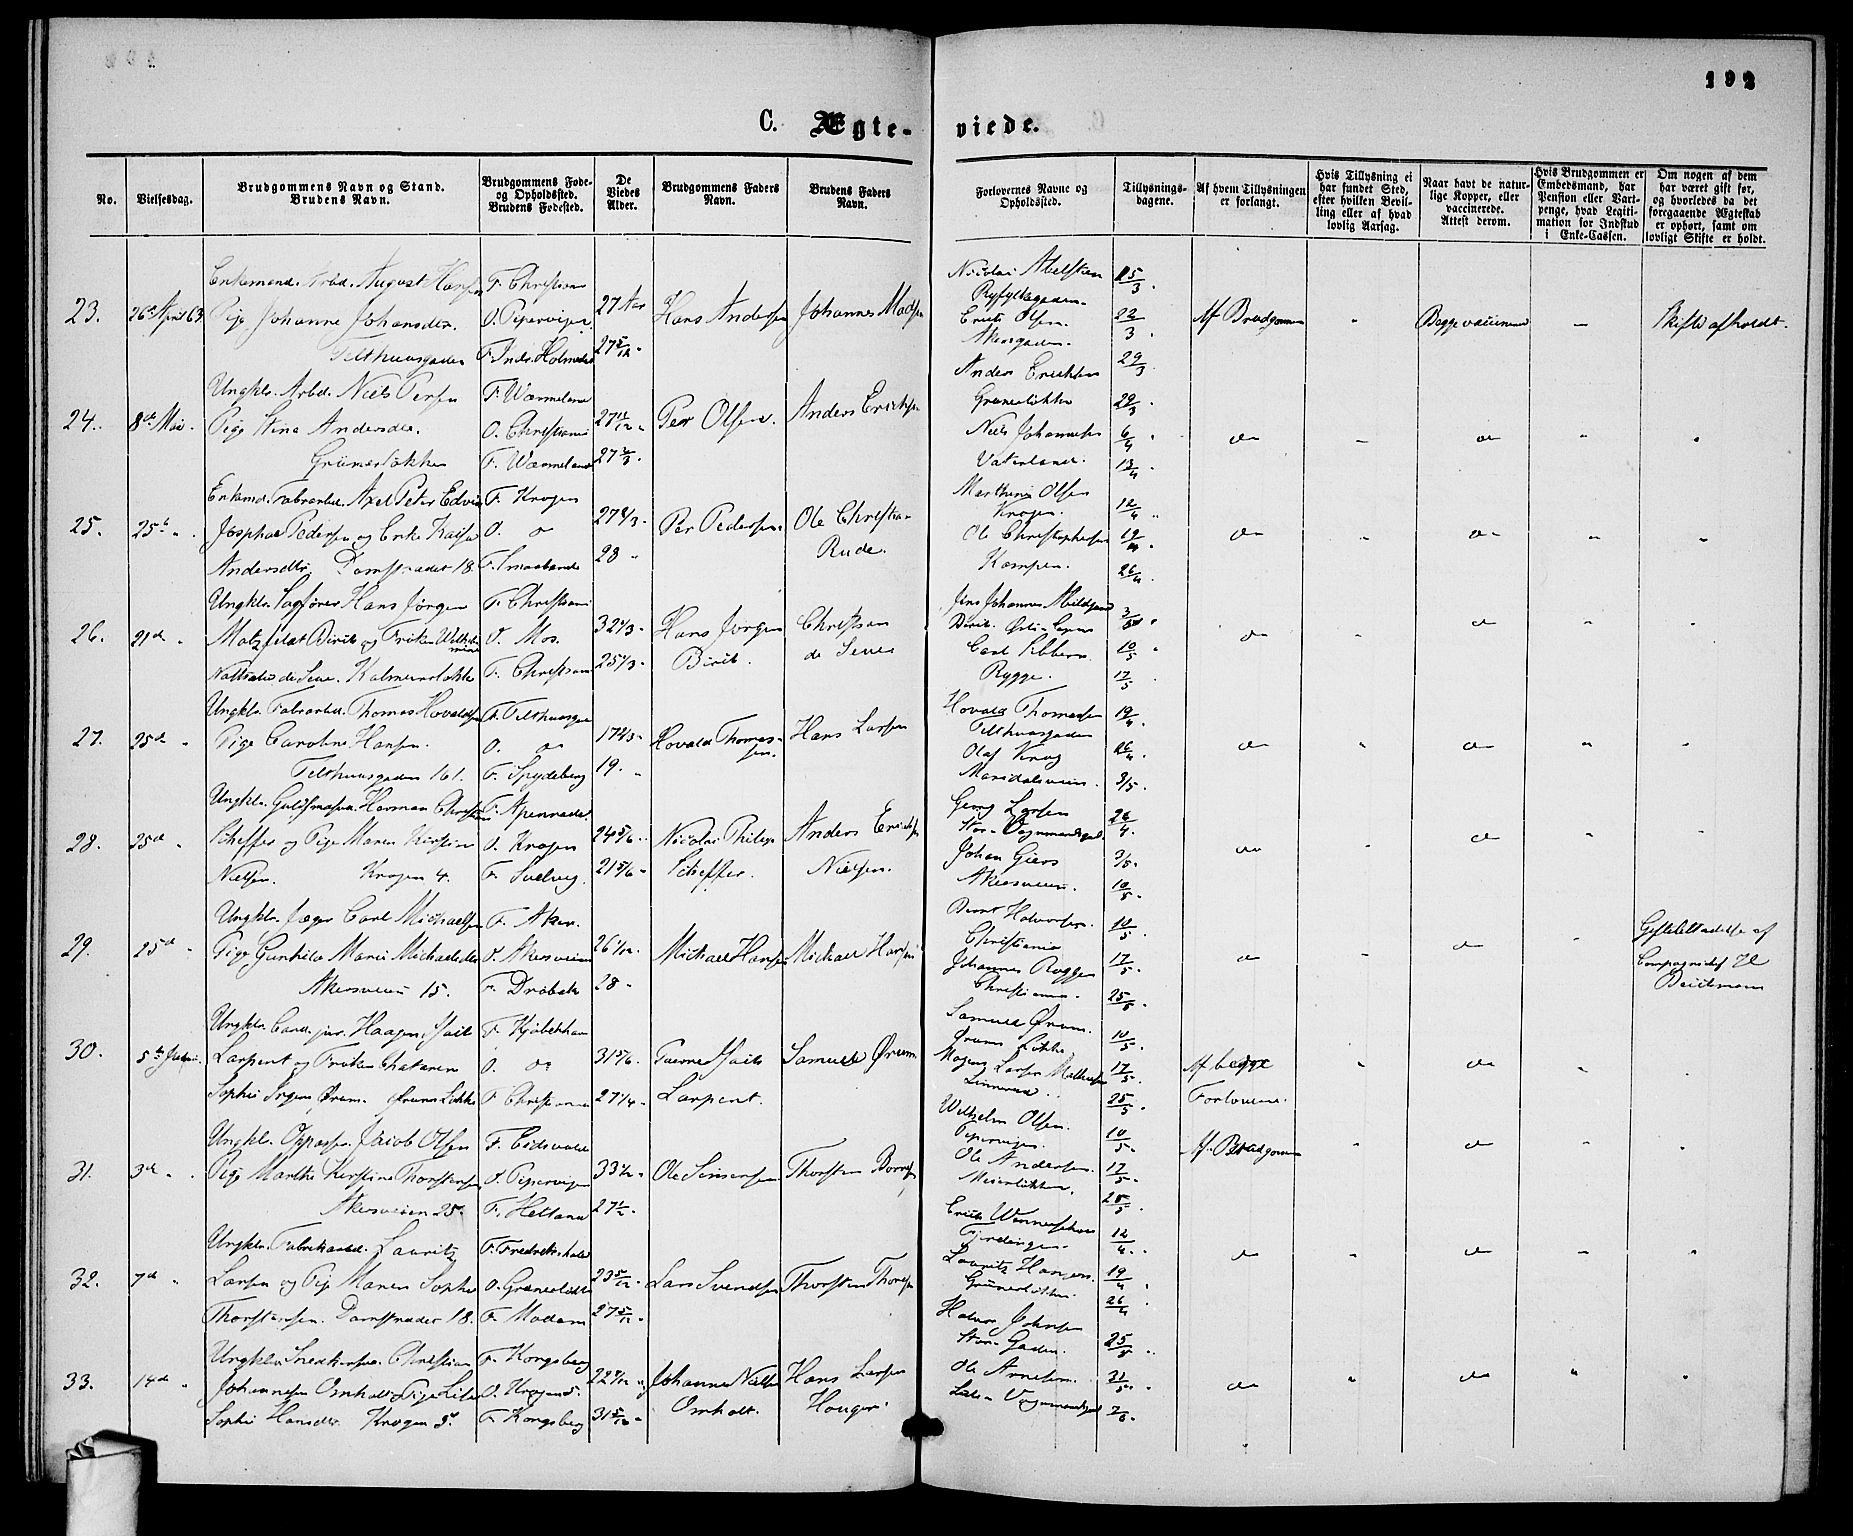 192
C. Ægte-viede.
No.
Vielsesdag.
Brudgommens Navn og Stand.
Brudens Navn.
Brudgommens Føde-
og Opholdssted.
Brudens Fødested.
De
Viedes
Alder.
Brudgommens Faders
Navn.
Brudens Faders
Navn.
Forlovernes Navne og
Opholdssted.
Tillysnings-
dagene.
Af hvem Tillysningen
er forlangt.
Hvis Tillysning ei
har fundet Sted,
efter hvilken Bevil-
ling eller af hvad
lovlig Aarsag.
Naar havt de natur-
lige Kopper, eller
vaccinerede.
Attest derom.
Hvis Brudgommen er
Embedsmand, har
Pension eller Vart-
penge, hvad Legiti-
mation for Indskud
i Enke-Cassen.
Om nogen af dem
har været gift før,
og hvorledes da det
foregaaende Ægteskab
er ophørt, samt om
lovligt Skifte er holdt.
23.
26de April 63
Enkemand. Arbd. August Hansen
Pige Johanne Johansdr.
Telthuusgaden
F. Christiania
O. Pipervigen
27 Aar
Hans Andersen
Johannes Madsen
Nicolai Abelsten
Ryfylkegaden
Erik Olsen
Akersgaden
15/3
22/3
29/3
Af Brudgommen
Begge vaccinerede
Skifte afholdt.
24.
8de Mai
Ungkl. Arbd. Niels Persen
Pige Stina Andersdr.
Grünerløkken
F. Wærmeland
O. Christiania
F. Wærmeland
27 11/12
27 2/3
Per Olsen
Anders Eriksen
Anders Eriksen
Grünerløkken
Niels Johannesen
Vaterland
29/3
6/4
13/4
do
do
25.
25de "
Enkemd. Fabrarbd. Axel Peter Edvin
Josphat Pedersen og Enke Kaisa
Andersdtr. Damstrædet 18.
F. Krogen
O. do
27 2/3
28 "
Per Pedersen
Ole Christian
Rude
Marthinus Olsen
Krogen
Ole Christophersen
Kampen
12/4
19/4
26/4
do
do
26.
21de "
Ungkl. Sagfører Hans Jørgen
F. Christiania
O. Mos.
F. Christiania
32 1/3
25 1/3
Hans Jørgen
Birib.
Christian
de Seue
Carl Sibbern
Rygge.
3/5
10/5
17/5
do
do
27.
25de "
Ungkl. Fabrarbd. Thomas Hovaldsen
Pige Caroline Hansen.
Telthuusgaden 161.
F. Telthuusgen
O. do
F. Spydeberg
17 2/3
19. "
Hovald Thomas-
sen
Hans Larsen
Hovald Thomassen
Telthuusgaden
Olaf Krog
Maridalsveien
19/4
26/4
3/5
do
do
28.
25de "
Scheffer og Pige Maren Kirstine
Nielsen. Krogen 4.
F. Apenrade
O. Krogen
F. Svelvig
24 5/6
21 5/6
Nicolai Philip
Scheffer.
Anders Erichsen
Nielsen.
Georg Larsen
Johan Giers
Akersveien
26/4
3/5
10/5
do
do
29.
25de "
Ungkl. Jæger Carl Michaelsen
Pige Gunhild Marie Michaelsdtr
Akersveien 15.
F. Aker.
O. Akersveien
F. Drøbak
26 1/12
28 "
Michael Hansen
Michael Hansen
Bernt Halvorsen
Christiania
Johannes Roggen
Christiania
10/5
17/5
25/5
do
do
Giftetilladelse af
Compagnichef
30.
5te Juni
Larpent og Frøken Catarine
Sophie Ørum. Ørums Løkke
F. Kjøbenhavn
O. do
F. Christiania
31 5/6
27 1/4
Larpent.
Samuel Ørum
Samuel Ørum
Ørums Løkke
10/5
17/5
25/5
Af begge
Forloverne.
do
31.
3de "
Ungkl. Oppasser Jacob Olsen
Pige Marthe Kirstine Thorstensen
Akersveien 25
F. Eidsvold
O. Pipervigen
F. Hetland
33 1/2
27 1/2
Ole Simensen
Wilhelm Olsen
Pipervigen
Ole Andersen
Meierløkken
10/5
17/5
25/5
Af Brudgommen
do
32.
7de "
Ungkl. Fabrikarbd. Lauritz
Larsen og Pige Maren Sophie
Thorstensen. Damstrædet 18.
F. Fredrikshald
O. Grünerløkken
F. Modum
23 5/12
27 5/12
Lars Svendsen
Thorsten Thoresen
Lauritz Hansen
Grünerløkken
12/4
19/4
26/4
do
do
33.
14de "
Ungkl. Snedkersv. Christian
Johannesen Omholt og Pige Lise
Sophie Hansdtr. Krogen 5.
F. Kongsberg
O. Krogen 5.
F. Kongsberg
22 9/12
31 5/12
Johannes Nielsen
Omholt.
Hans Larsen
Houger
Halvor Johnsen
Stor-Gaden
Ole Arnesen
Lille Vognmandsgd
25/5
31/5
7/6
do
do